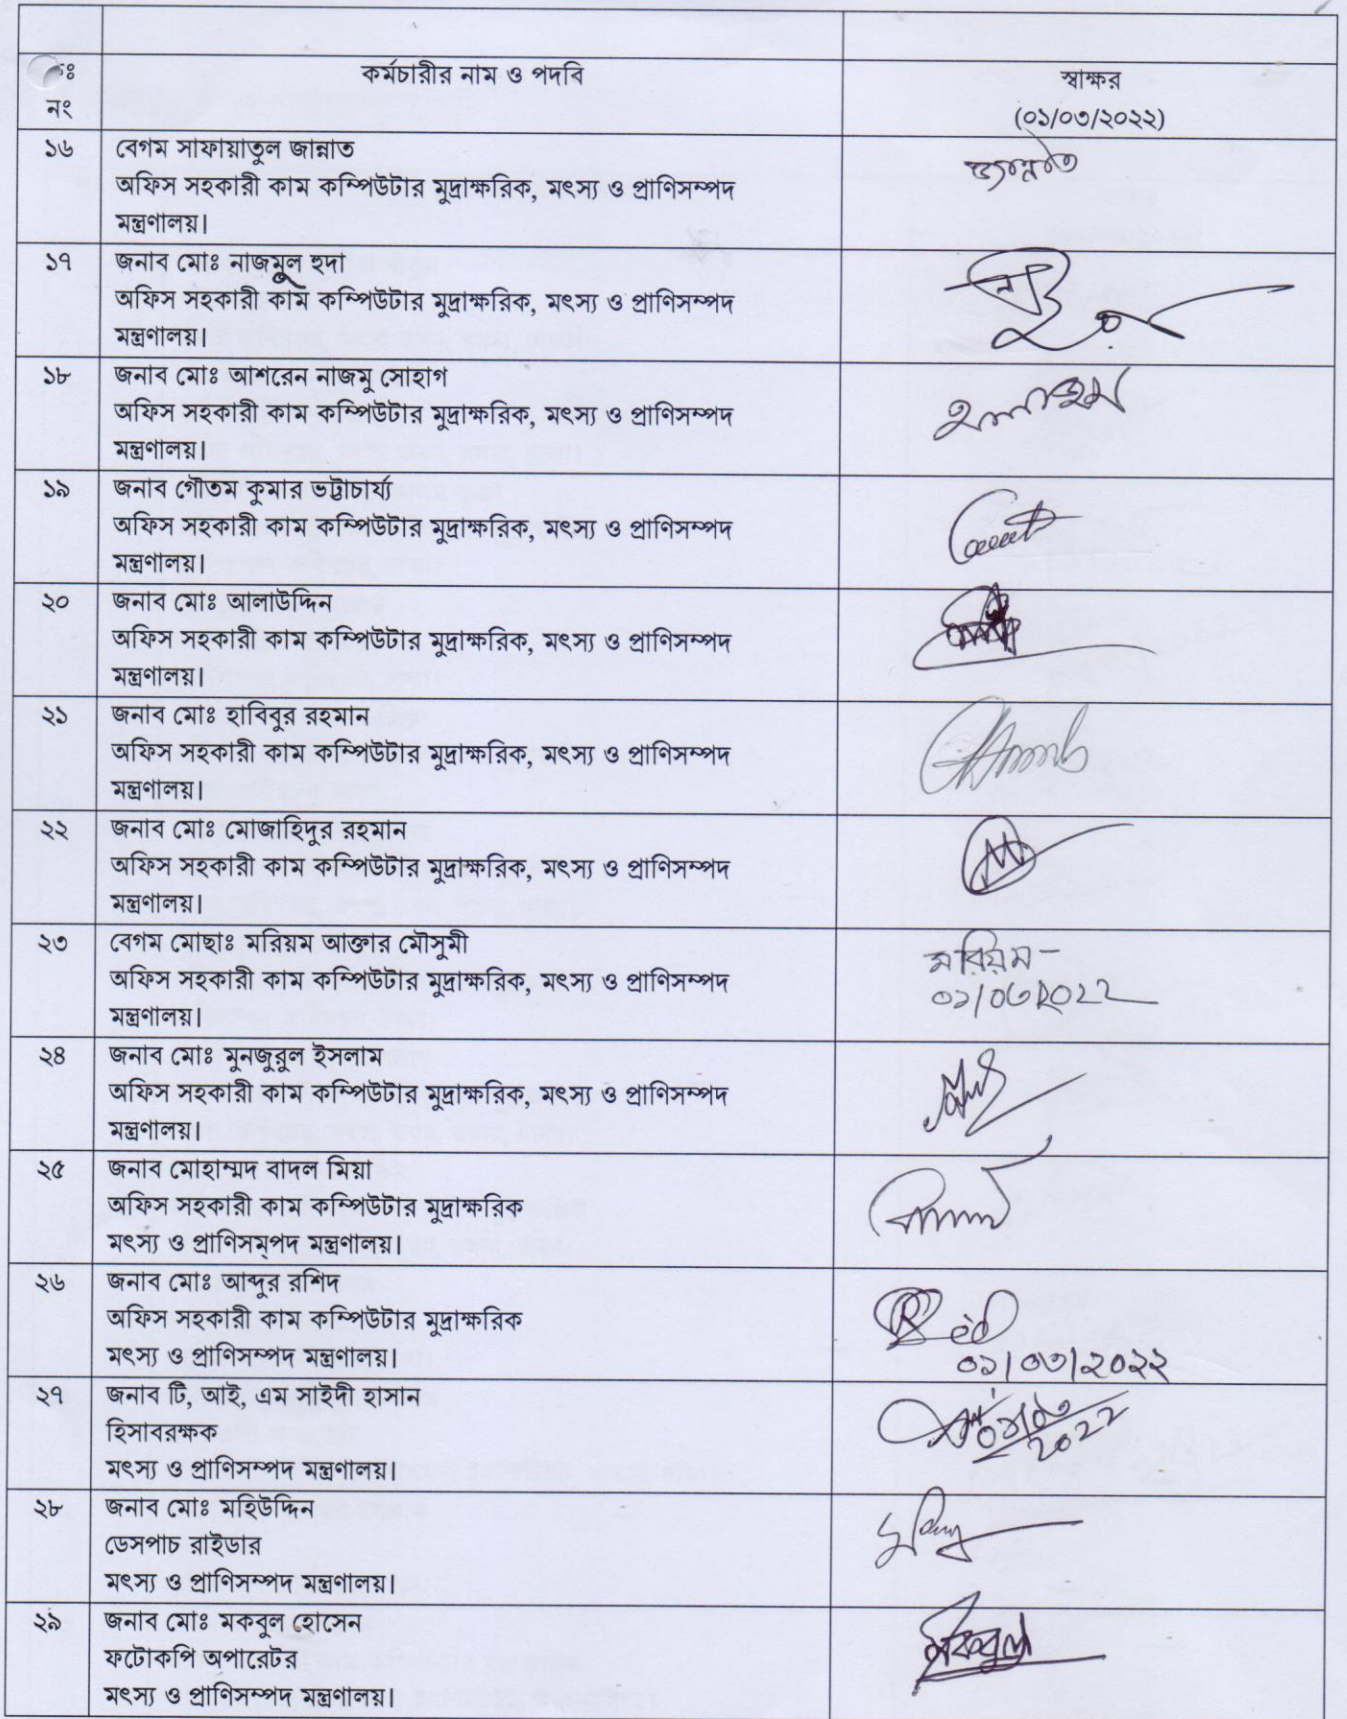 নং
কর্মচারীর নাম ও পদবি
স্বাক্ষর
(০১/০৩/২০২২)
১৬
বেগম সাফায়াতুল জান্নাত
অফিস সহকারী কাম কম্পিউটার মুদ্রাক্ষরিক, মৎস্য ও প্রাণিসম্পদ
মন্ত্রণালয়।
১৭
জনাব মোঃ নাজমুল হুদা
অফিস সহকারী কাম কম্পিউটার মুদ্রাক্ষরিক, মৎস্য ও প্রাণিসম্পদ
মন্ত্রণালয়।
১৮
জনাব মোঃ আশরেন নাজমু সোহাগ
অফিস সহকারী কাম কম্পিউটার মুদ্রাক্ষরিক, মৎস্য ও প্রাণিসম্পদ
মন্ত্রণালয়।
১৯
জনাব গৌতম কুমার ভট্টাচার্য্য
অফিস সহকারী কাম কম্পিউটার মুদ্রাক্ষরিক, মৎস্য ও প্রাণিসম্পদ
মন্ত্রণালয়।
২০
জনাব মোঃ আলাউদ্দিন
অফিস সহকারী কাম কম্পিউটার মুদ্রাক্ষরিক, মৎস্য ও প্রাণিসম্পদ
মন্ত্রণালয়।
২১
জনাব মোঃ হাবিবুর রহমান
অফিস সহকারী কাম কম্পিউটার মুদ্রাক্ষরিক, মৎস্য ও প্রাণিসম্পদ
মন্ত্রণালয়।
২২
জনাব মোঃ মোজাহিদুর রহমান
অফিস সহকারী কাম কম্পিউটার মুদ্রাক্ষরিক, মৎস্য ও প্রাণিসম্পদ
মন্ত্রণালয়।
২৩
বেগম মোছাঃ মরিয়ম আক্তার মৌসুমী
অফিস সহকারী কাম কম্পিউটার মুদ্রাক্ষরিক, মৎস্য ও প্রাণিসম্পদ
মন্ত্রণালয়।
মরিয়ম -
০১/০৩/২০২২
২৪
জনাব মোঃ মুনজুরুল ইসলাম
অফিস সহকারী কাম কম্পিউটার মুদ্রাক্ষরিক, মৎস্য ও প্রাণিসম্পদ
মন্ত্রণালয়।
২৫
জনাব মোহাম্মদ বাদল মিয়া
অফিস সহকারী কাম কম্পিউটার মুদ্রাক্ষরিক
মৎস্য ও প্রাণিসম্‌পদ মন্ত্রণালয়।
২৬
জনাব মোঃ আব্দুর রশিদ
অফিস সহকারী কাম কম্পিউটার মুদ্রাক্ষরিক
মৎস্য ও প্রাণিসম্পদ মন্ত্রণালয়।
০১/০৩/২০২২
২৭
জনাব টি, আই, এম সাইদী হাসান
হিসাবরক্ষক
মৎস্য ও প্রাণিসম্পদ মন্ত্রণালয়।
০১/০৩
২০২২
২৮
জনাব মোঃ মহিউদ্দিন
ডেসপাচ রাইডার
মৎস্য ও প্রাণিসম্পদ মন্ত্রণালয়।
২৯
জনাব মোঃ মকবুল হোসেন
ফটোকপি অপারেটর
মৎস্য ও প্রাণিসম্পদ মন্ত্রণালয়।
মকবুল